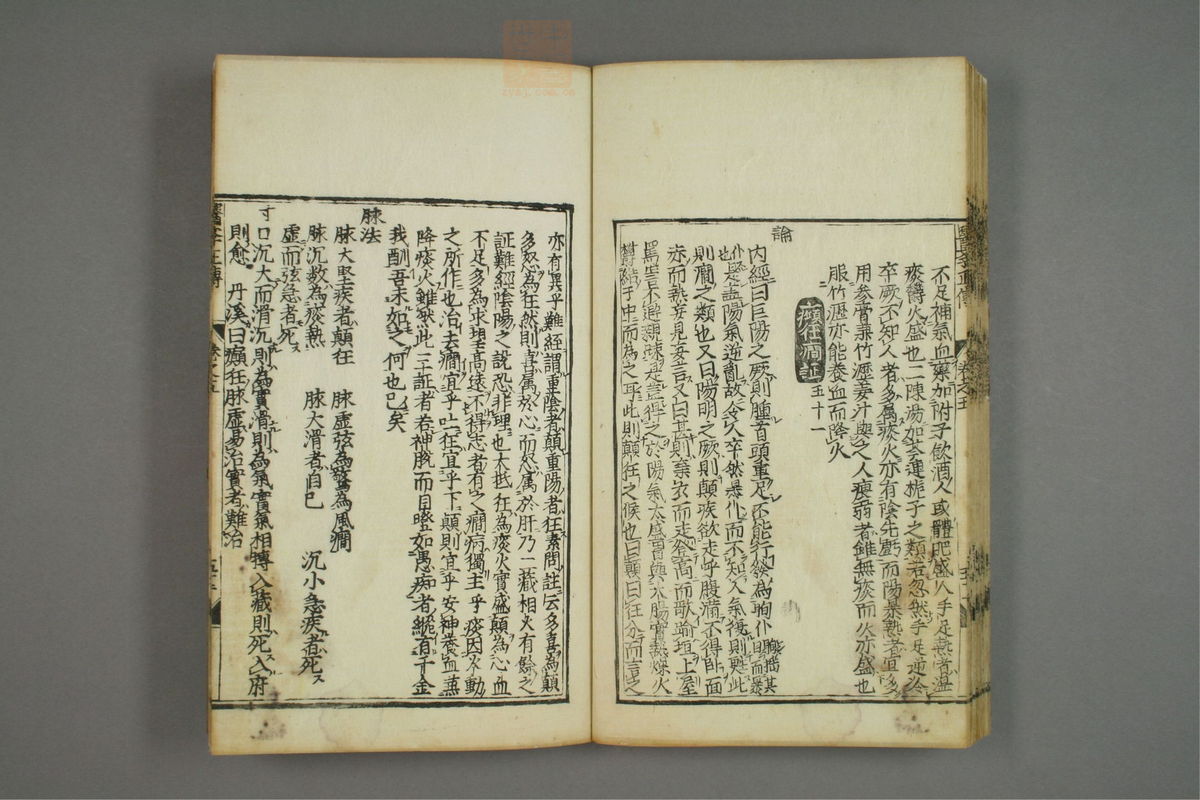 醫學正傳 卷之五
不足神氣血藥加附子飲酒人或體肥盛人手足熱者濕
痰欝火盛也二陳湯加芩連梔子之類若忽然手足逆冷
卒厥不知人者多属痰火亦有陰先虧而陽暴熱者宜多
用参膏兼竹瀝姜汁與之人瘦弱者雖無痰而火亦盛也
服竹瀝亦能養血而降火
癲狂癇証 五十一
論
内經曰巨陽之厥則腫首頭重足不能行發為眴仆眴揺其目而暴
仆也是盖陽氣逆亂故令人卒然暴仆而不知人氣復則甦此
則癇之類也又曰陽明之厥則癲疾欲走呼腹滿不得卧面
赤而熱妄見妄言又曰甚則棄衣而走登高而歌踰垣上屋
罵詈不避親踈是盖得之於陽氣太盛胃與大腸實熱燥火
欝結于中而為之耳此則顛狂之候也曰顛曰狂分而言之
亦有異乎難經謂重陰者顛重陽者狂素問註云多喜為顛
多怒為狂然則喜属於心而怒属於肝乃二藏相火有餘之
証難經陰陽之說恐非理也大抵狂為痰火實盛顛為心血
不足多為求望高遠不得志者有之癇病獨主乎痰因火動
之所作也治法癇宜乎吐狂宜乎下顛則宜乎安神養血兼
降痰火雖然此三証者若神脫而目瞪如愚痴者縱有千金
我酬吾未如之何也已矣
脉法
脉大堅疾者顛狂 脉虚弦為驚為風癇
脉沉数為痰熱 脉大滑者自已 沉小急疾者死
虚而弦急者死
寸口沉大而滑沉則為實滑則為氣實氣相搏入藏則死入府
則愈 丹溪曰癲狂脉虚易治實者難治
醫學正傳 卷之五